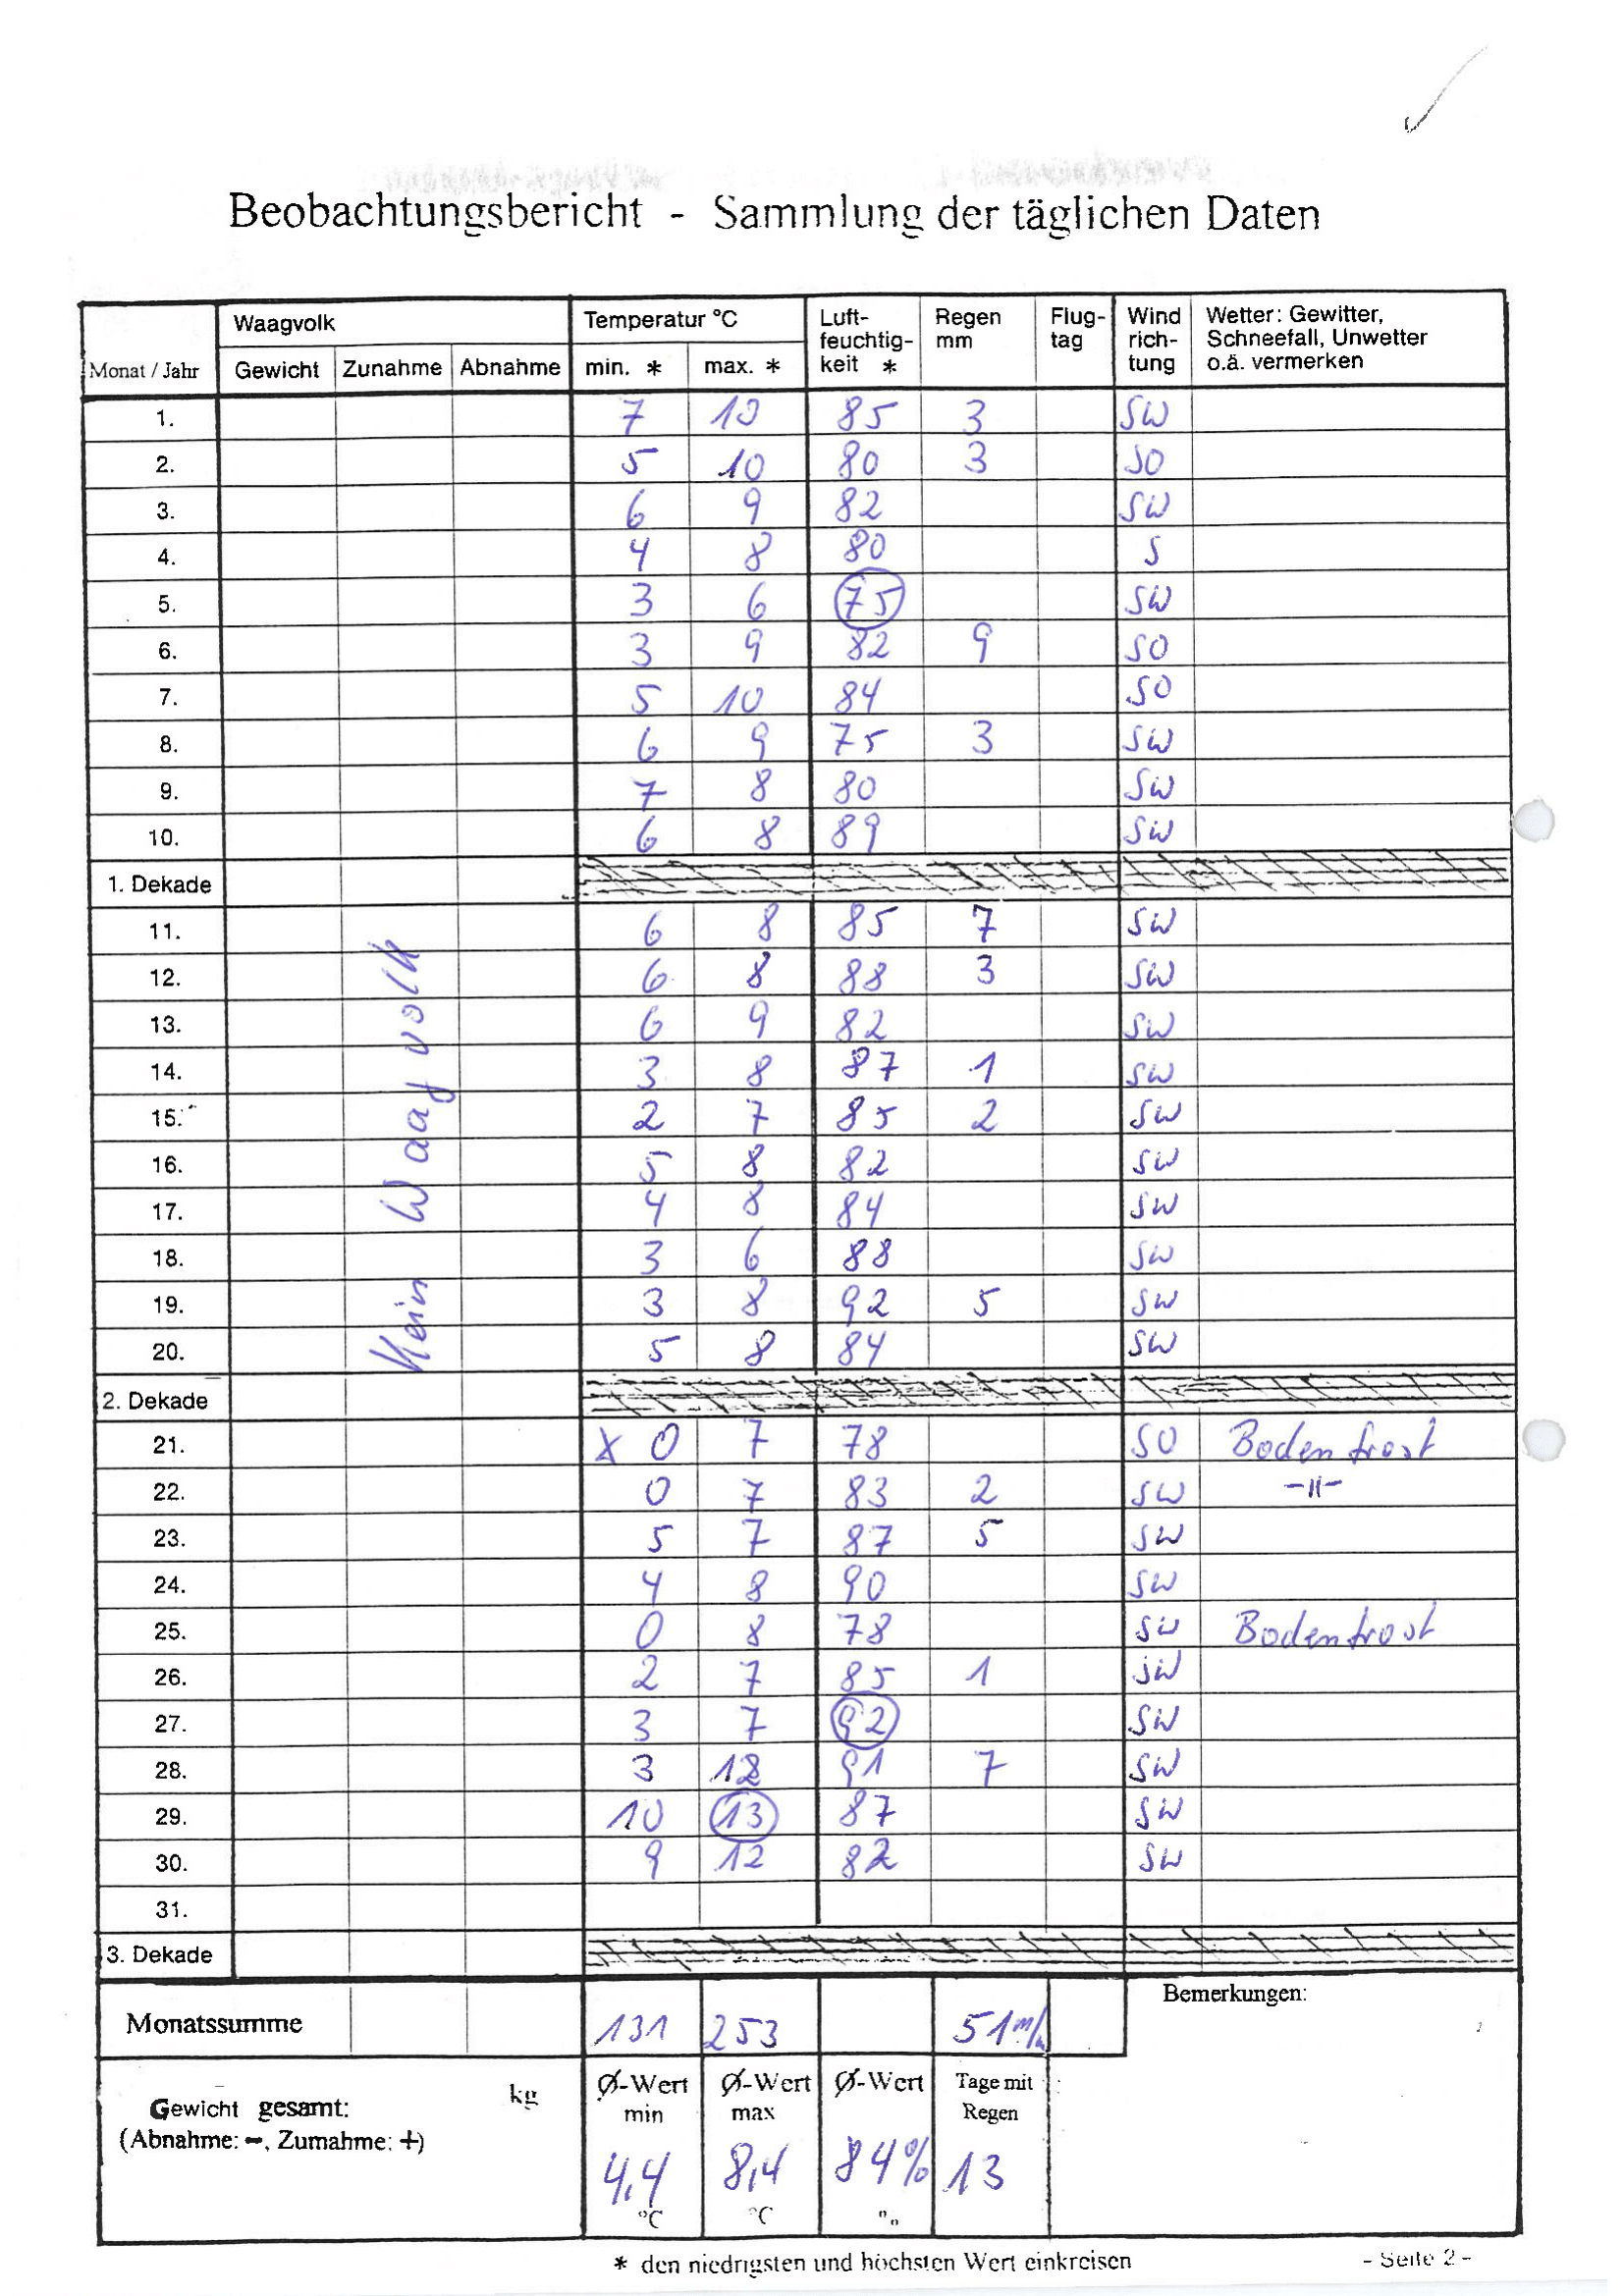 Beobachtungsbericht - Sammlung der täglichen Daten
Monat / Jahr
Waagvolk
Gewicht Zunahme Abnahme
Temperatur °C
min. * max. *
Luft-
feuchtig-
keit *
Regen
mm
Flug-
tag
Wind
rich-
tung
Wetter: Gewitter,
Schneefall, Unwetter
o.ä. vermerken
1. 7 10 85 3 SW
2. 5 10 80 3 SO
3. 6 9 82 SW
4. 4 8 80 S
5. 3 6 75 SW
6. 3 9 82 9 SO
7. 5 10 84 SO
8. 6 9 75 3 SW
9. 7 8 80 SW
10. 6 8 89 SW
1. Dekade
11. 6 8 85 7 SW
12. 6 8 88 3 SW
13. 6 9 82 SW
14. 3 8 87 1 SW
15. 2 7 85 2 SW
16. 5 8 82 SW
17. 4 8 84 SW
18. 3 6 88 SW
19. 3 8 92 5 SW
20. 5 8 84 SW
Kein Waagvolk
2. Dekade
21. x 0 7 78 SO Bodenfrost
22. 0 7 83 2 SW -11-
23. 5 7 87 5 SW
24. 4 8 90 SW
25. 0 8 78 SW Bodenfrost
26. 2 7 85 1 SW
27. 3 7 92 SW
28. 3 12 91 7 SW
29. 10 13 87 SW
30. 9 12 82 SW
31.
3. Dekade
Monatssumme 131 253 51 m/m
Bemerkungen:
Gewicht gesamt: kg
(Abnahme: -, Zumahme: +)
Ø-Wert
min
4,4
°C
Ø-Wert
max
8,4
°C
Ø-Wert
84%
Tage mit
Regen
13
* den niedrigsten und höchsten Wert einkreisen
- Seite 2 -